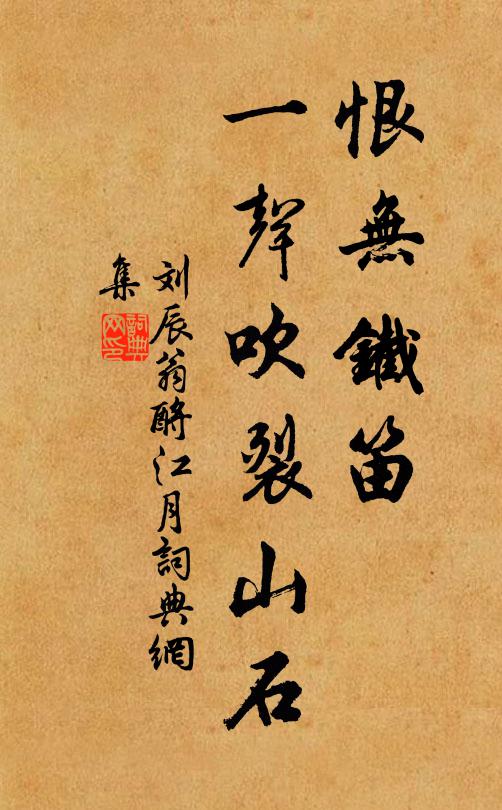 恨無鐵笛
一聲吹裂山石
刘辰翁酹江月詞典網
集
詞典
网印